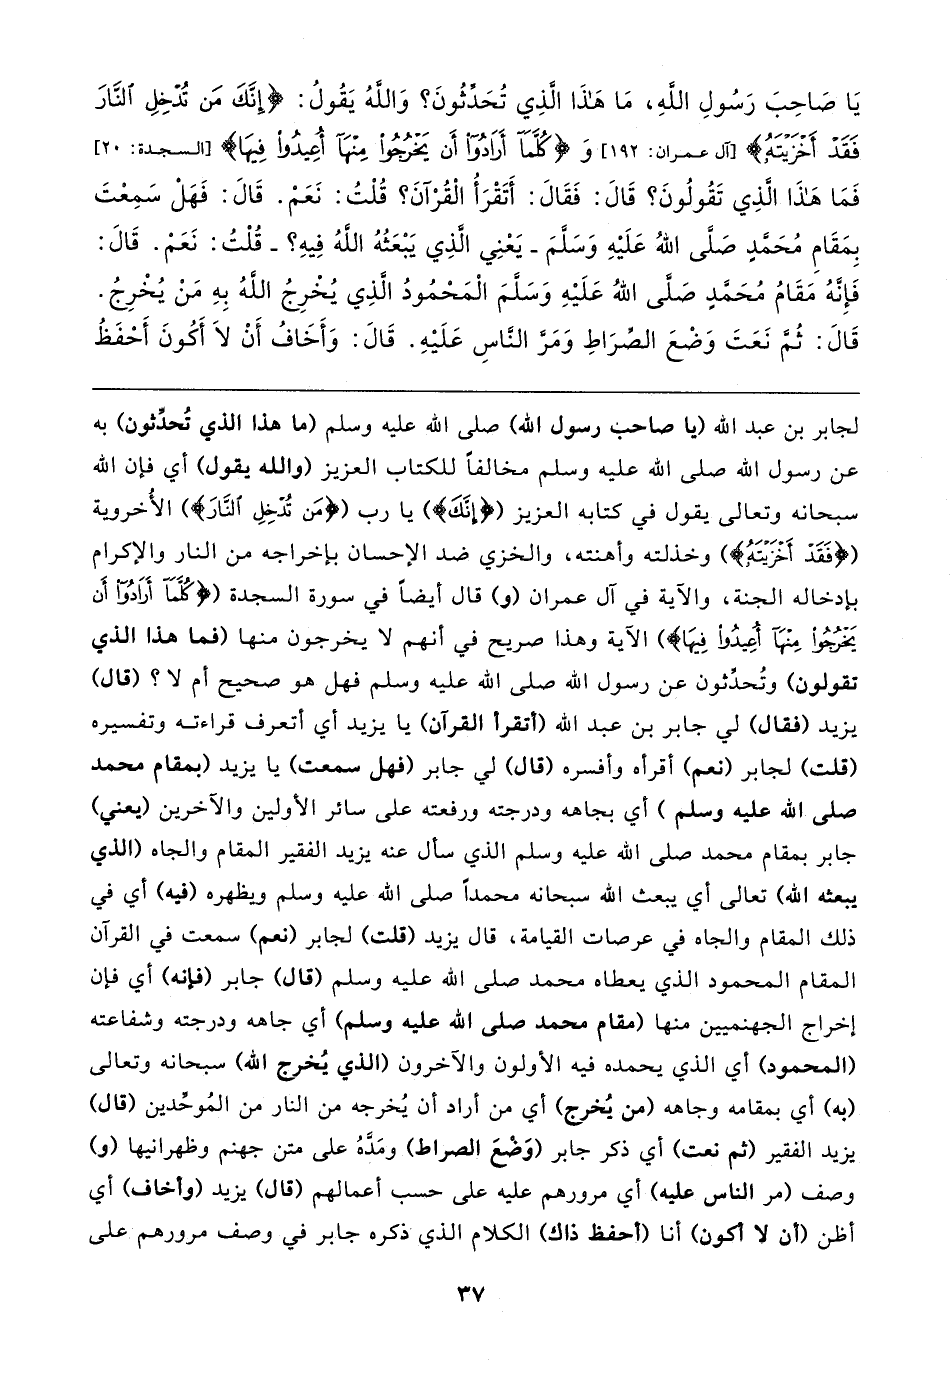 يَا صَاحِبَ رَسُولِ اللَّهِ، مَا هَٰذَا الَّذِي تُحَدِّثُونَ؟ وَاللَّهُ يَقُولُ: ﴿إِنَّكَ مَن تُدْخِلِ ٱلنَّارَ
فَقَدْ أَخْزَيْتَهُۥ﴾ [آل عمران: ١٩٢] وَ ﴿كُلَّمَآ أَرَادُوٓا۟ أَن يَخْرُجُوا۟ مِنْهَآ أُعِيدُوا۟ فِيهَا﴾ [السجدة: ٢٠]
فَمَا هَٰذَا الَّذِي تَقُولُونَ؟ قَالَ: فَقَالَ: أَتَقْرَأُ الْقُرْآنَ؟ قُلْتُ: نَعَمْ. قَالَ: فَهَلْ سَمِعْتَ
بِمَقَامِ مُحَمَّدٍ صَلَّى اللهُ عَلَيْهِ وَسَلَّمَ ـ يَعْنِي الَّذِي يَبْعَثُهُ اللَّهُ فِيهِ؟ ـ قُلْتُ: نَعَمْ. قَالَ:
فَإِنَّهُ مَقَامُ مُحَمَّدٍ صَلَّى اللهُ عَلَيْهِ وَسَلَّمَ الْمَحْمُودُ الَّذِي يُخْرِجُ اللَّهُ بِهِ مَنْ يُخْرِجُ.
قَالَ: ثُمَّ نَعَتَ وَضْعَ الصِّرَاطِ وَمَرَّ النَّاسِ عَلَيْهِ. قَالَ: وَأَخَافُ أَنْ لاَ أَكُونَ أَحْفَظُ
لجابر بن عبد الله (يا صاحب رسول الله) صلى الله عليه وسلم (ما هذا الذي تُحدِّثون) به
عن رسول الله صلى الله عليه وسلم مخالفاً للكتاب العزيز (والله يقول) أي فإن الله
سبحانه وتعالى يقول في كتابه العزيز (﴿إِنَّكَ﴾) يا رب (﴿مَن تُدْخِلِ ٱلنَّارَ﴾) الأُخروية
(﴿فَقَدْ أَخْزَيْتَهُۥ﴾) وخذلته وأهنته، والخزي ضد الإحسان بإخراجه من النار والإكرام
بإدخاله الجنة، والآية في آل عمران (و) قال أيضاً في سورة السجدة (﴿كُلَّمَآ أَرَادُوٓا۟ أَن
يَخْرُجُوا۟ مِنْهَآ أُعِيدُوا۟ فِيهَا﴾) الآية وهذا صريح في أنهم لا يخرجون منها (فما هذا الذي
تقولون) وتُحدِّثون عن رسول الله صلى الله عليه وسلم فهل هو صحيح أم لا ؟ (قال)
يزيد (فقال) لي جابر بن عبد الله (أتقرأ القرآن) يا يزيد أي أتعرف قراءته وتفسيره
(قلت) لجابر (نعم) أقرأه وأفسره (قال) لي جابر (فهل سمعت) يا يزيد (بمقام محمد
صلى الله عليه وسلم ) أي بجاهه ودرجته ورفعته على سائر الأولين والآخرين (يعني)
جابر بمقام محمد صلى الله عليه وسلم الذي سأل عنه يزيد الفقير المقام والجاه (الذي
يبعثه الله) تعالى أي يبعث الله سبحانه محمداً صلى الله عليه وسلم ويظهره (فيه) أي في
ذلك المقام والجاه في عرصات القيامة، قال يزيد (قلت) لجابر (نعم) سمعت في القرآن
المقام المحمود الذي يعطاه محمد صلى الله عليه وسلم (قال) جابر (فإنه) أي فإن
إخراج الجهنميين منها (مقام محمد صلى الله عليه وسلم) أي جاهه ودرجته وشفاعته
(المحمود) أي الذي يحمده فيه الأولون والآخرون (الذي يُخرج الله) سبحانه وتعالى
(به) أي بمقامه وجاهه (من يُخرج) أي من أراد أن يُخرجه من النار من المُوحِّدين (قال)
يزيد الفقير (ثم نعت) أي ذكر جابر (وَضْعَ الصراط) ومَدَّهُ على متن جهنم وظهرانيها (و)
وصف (مر الناس عليه) أي مرورهم عليه على حسب أعمالهم (قال) يزيد (وأخاف) أي
أظن (أن لا أكون) أنا (أحفظ ذاك) الكلام الذي ذكره جابر في وصف مرورهم على
٣٧